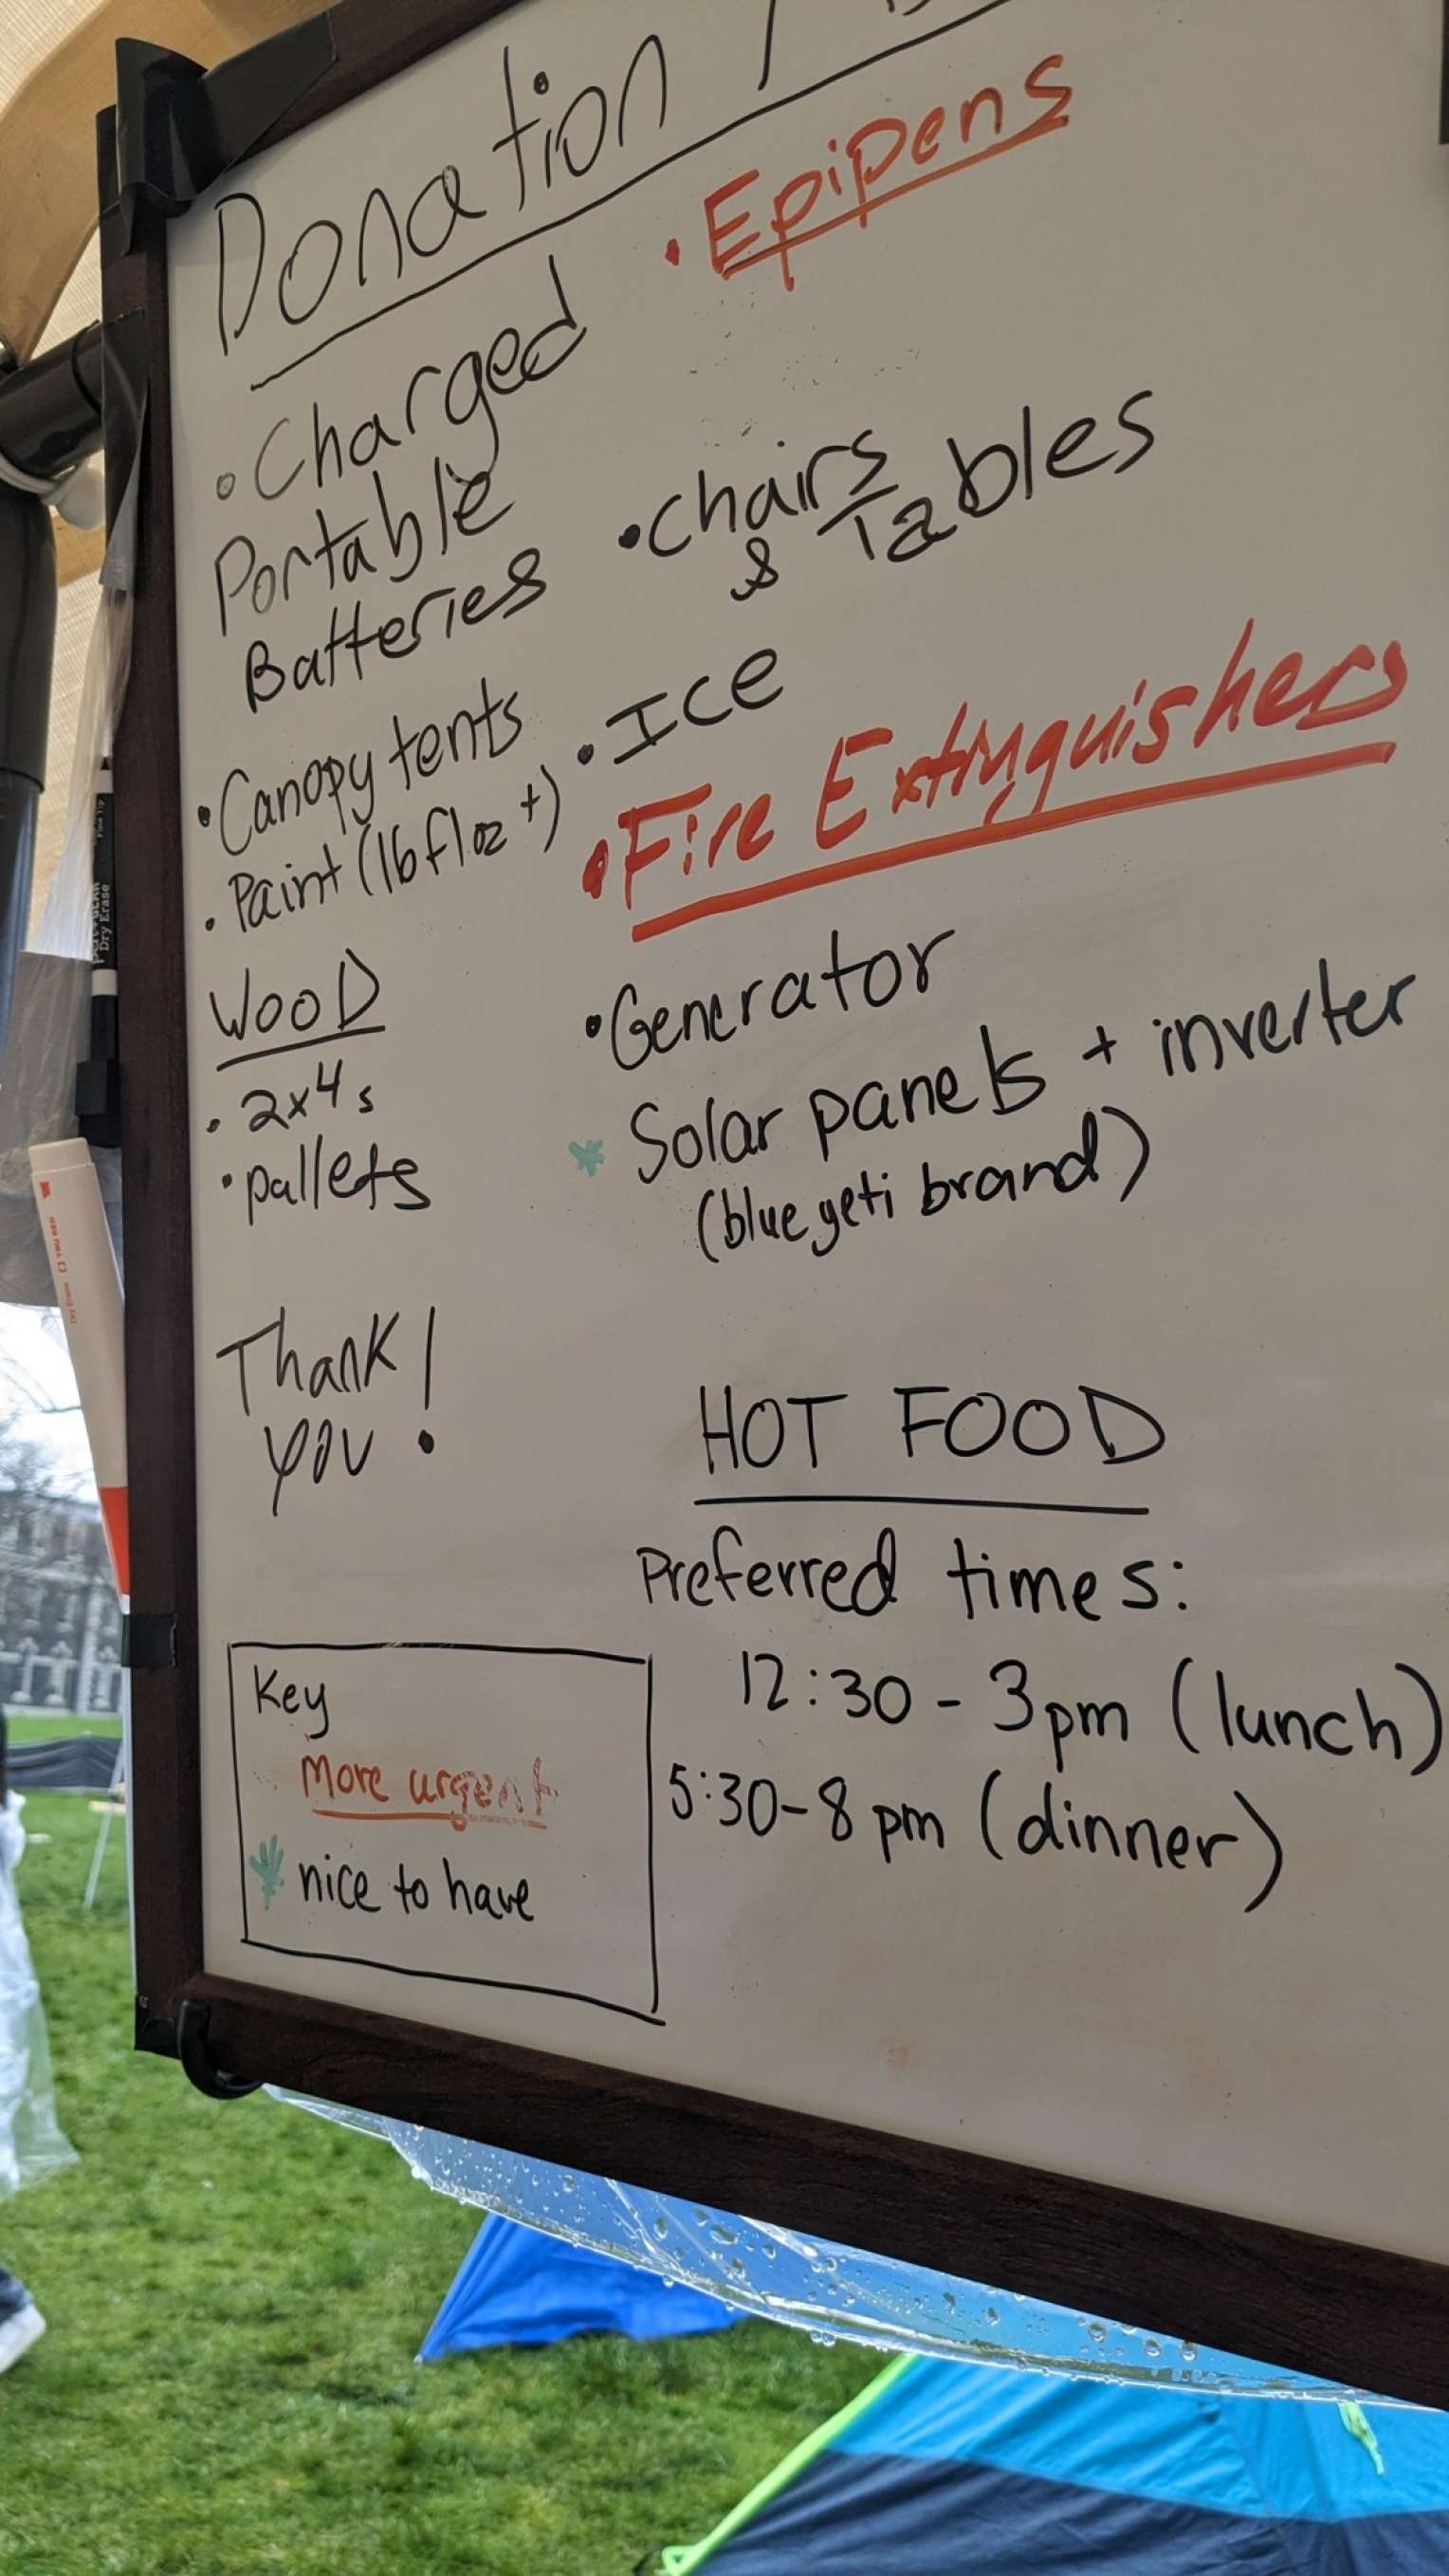 Donation
• Charged
Portable
Batteries
• Canopy tents
• Paint (16 fl oz +)
WOOD
• 2x4s
• pallets
Thank
you!
• Epipens
• Chairs
& Tables
• Ice
• Fire Extinguishers
• Generator
* Solar panels + inverter
(blue yeti brand)
HOT FOOD
Preferred times:
12:30 - 3pm (lunch)
5:30-8 pm (dinner)
Key
More urgent
* nice to have
Dry Erase
Dry Erase